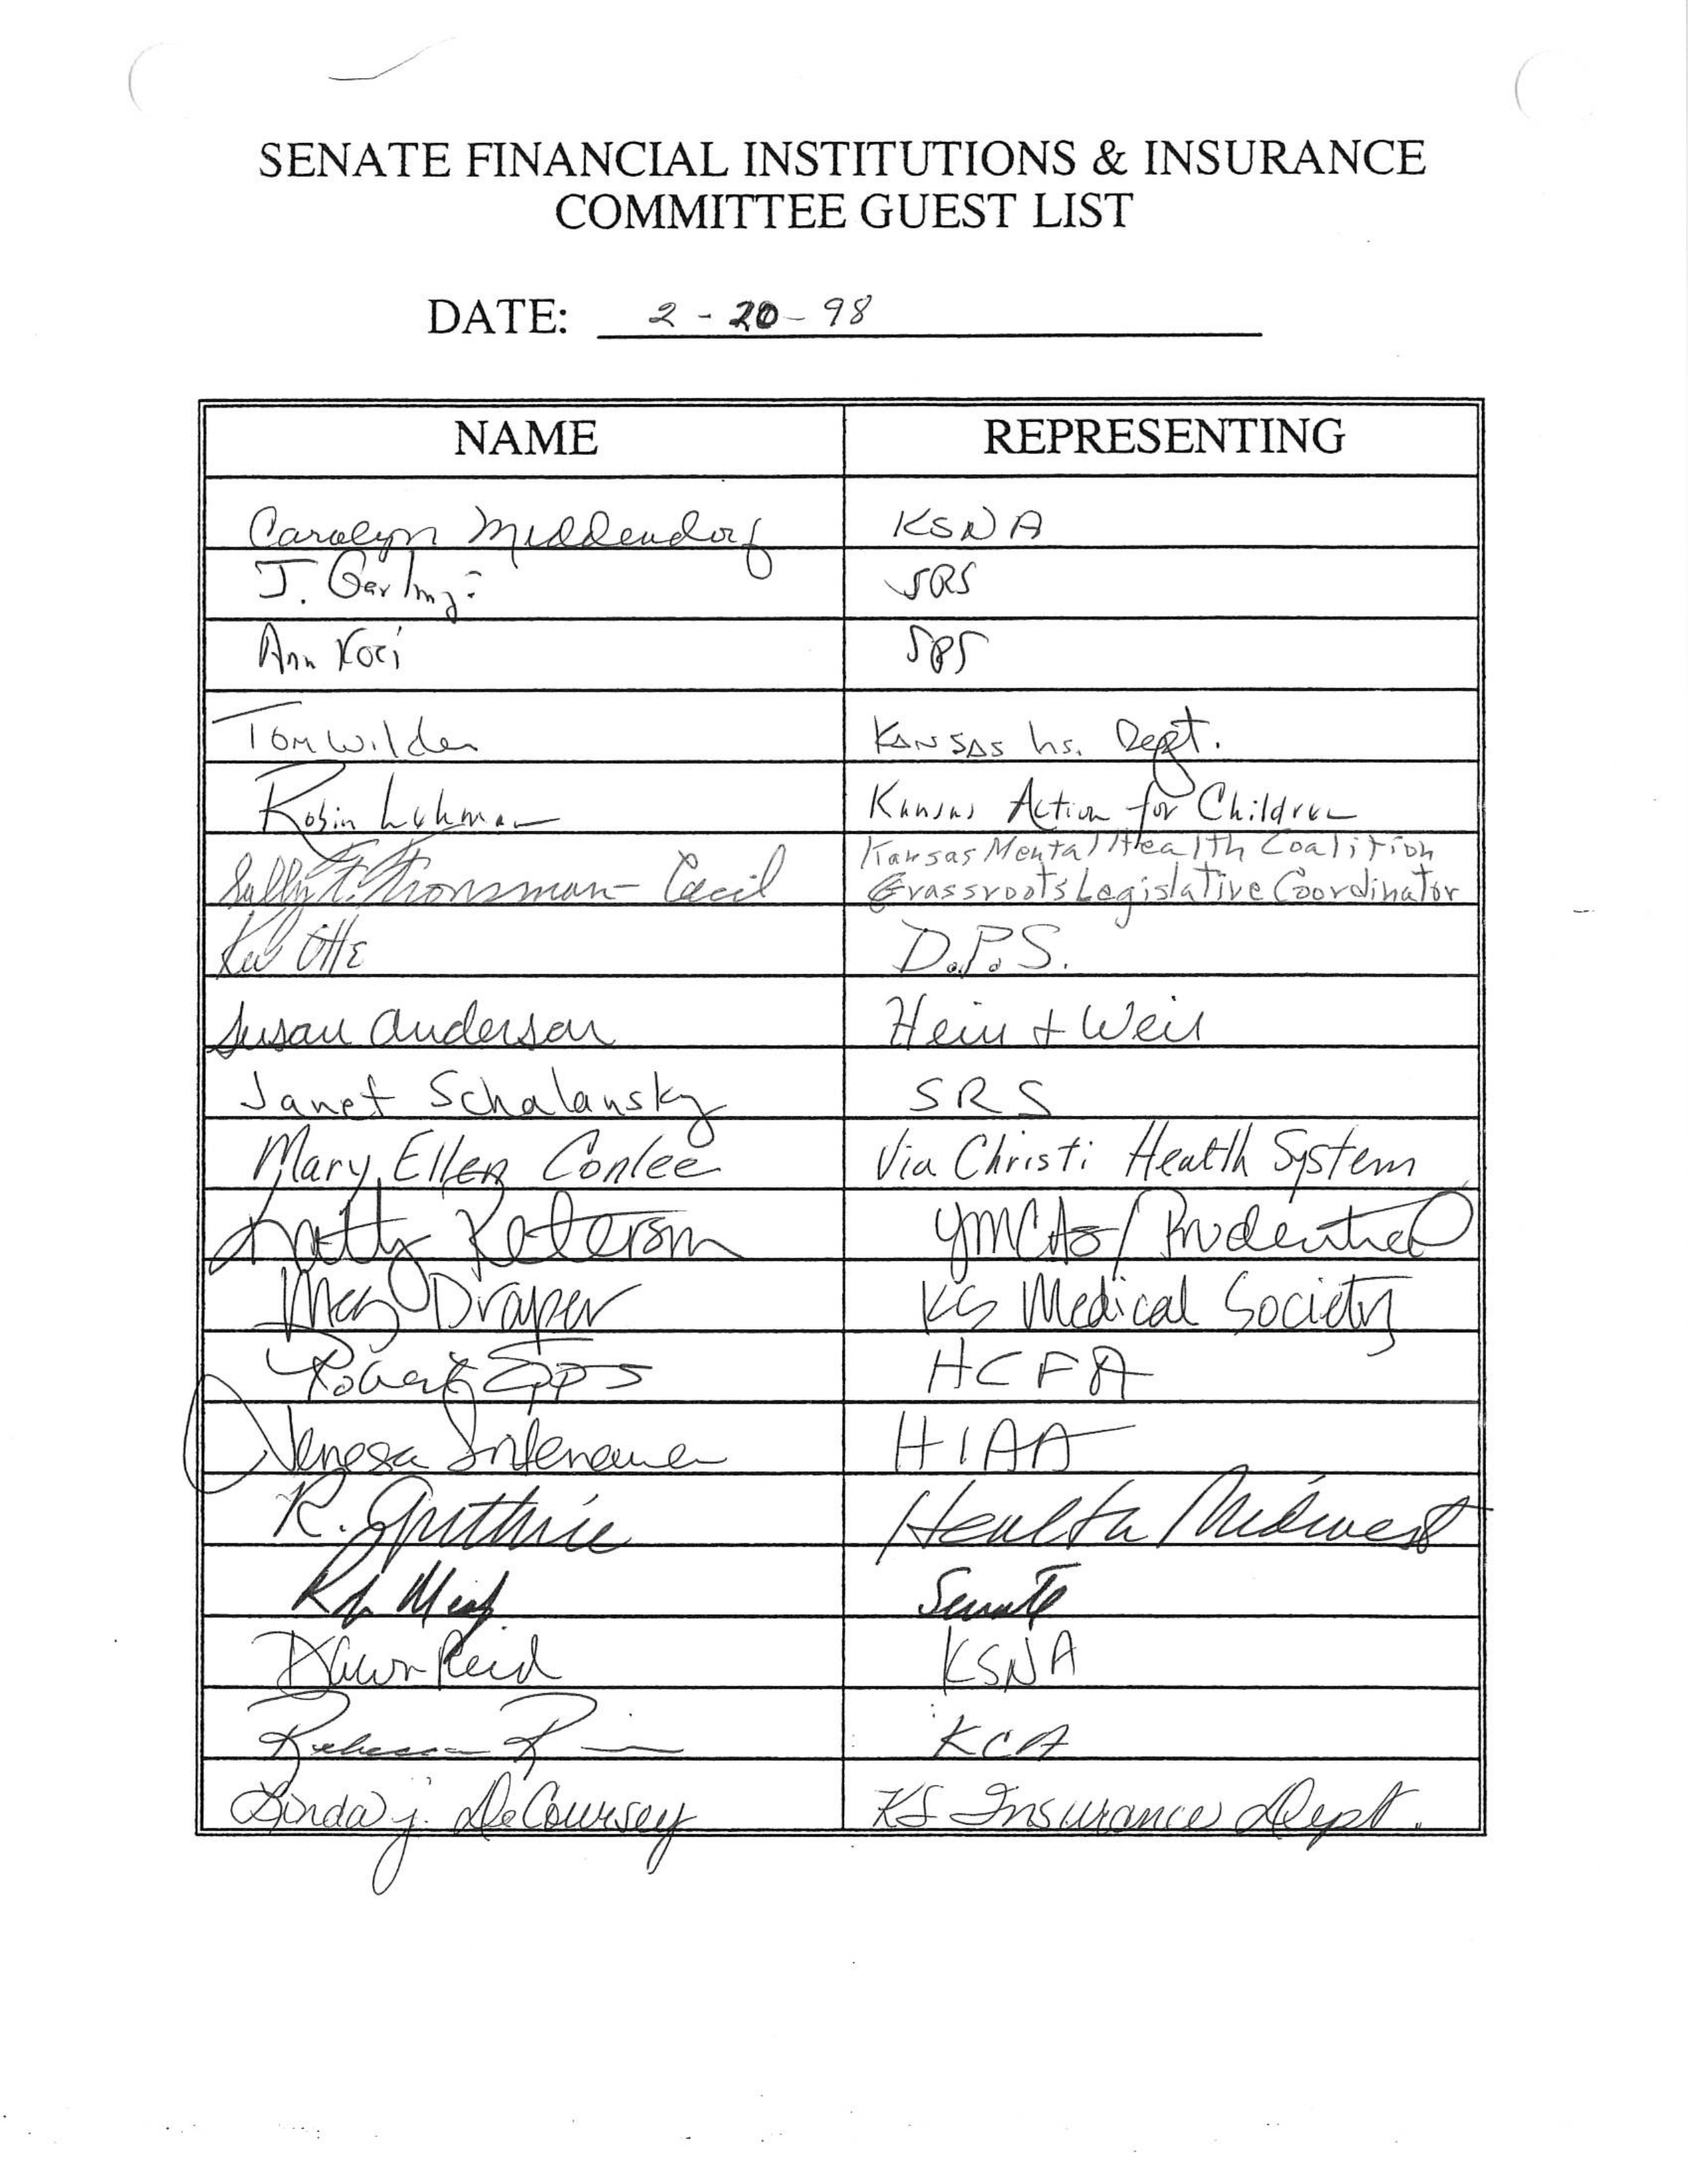 SENATE FINANCIAL INSTITUTIONS & INSURANCE
COMMITTEE GUEST LIST
DATE: 2-20-98
NAME REPRESENTING
Carolyn Middendorf KSNA
J. SRS
Ann Koci SRS
Tom Wilder Kansas Ins. Dept.
Robin Lehman Kansas Action for Children
Kansas Mental Health Coalition
Sally F. Cecil Grassroots Legislative Coordinator
Otte D.P.S.
Susan Anderson Hein + Weir
Janet Schalansky SRS
Mary Ellen Conlee Via Christi Health System
Peterson YMCAs/Prudential
Meg Draper KS Medical Society
Robert Epps HCFA
HIAA
R. Guthrie Health Midwest
Senate
Dawn Reid KSNA
Rebecca KCA
Linda J. DeCoursey KS Insurance Dept.